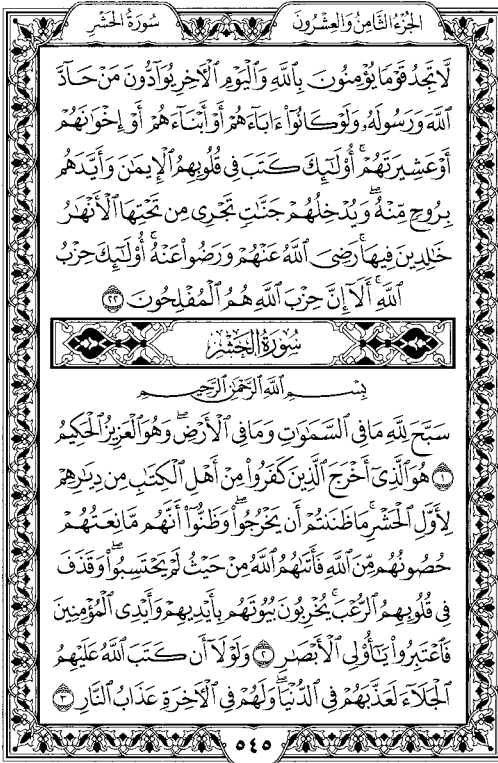 سُورَةُ الحَشْرِ
الجُزْءُ الثَّامِنُ وَالعِشْرُونَ
لَّا تَجِدُ قَوْمًا يُؤْمِنُونَ بِٱللَّهِ وَٱلْيَوْمِ ٱلْأَخِرِ يُوَآدُّونَ مَنْ حَآدَّ
ٱللَّهَ وَرَسُولَهُۥ وَلَوْ كَانُوٓا۟ ءَابَآءَهُمْ أَوْ أَبْنَآءَهُمْ أَوْ إِخْوَٰنَهُمْ
أَوْ عَشِيرَتَهُمْ ۚ أُو۟لَٰٓئِكَ كَتَبَ فِى قُلُوبِهِمُ ٱلْإِيمَٰنَ وَأَيَّدَهُم
بِرُوحٍ مِّنْهُ ۖ وَيُدْخِلُهُمْ جَنَّٰتٍ تَجْرِى مِن تَحْتِهَا ٱلْأَنْهَٰرُ
خَٰلِدِينَ فِيهَا ۚ رَضِىَ ٱللَّهُ عَنْهُمْ وَرَضُوا۟ عَنْهُ ۚ أُو۟لَٰٓئِكَ حِزْبُ
ٱللَّهِ ۚ أَلَآ إِنَّ حِزْبَ ٱللَّهِ هُمُ ٱلْمُفْلِحُونَ ٢٢
سُورَةُ الحَشْرِ
بِسْمِ ٱللَّهِ ٱلرَّحْمَٰنِ ٱلرَّحِيمِ
سَبَّحَ لِلَّهِ مَا فِى ٱلسَّمَٰوَٰتِ وَمَا فِى ٱلْأَرْضِ ۖ وَهُوَ ٱلْعَزِيزُ ٱلْحَكِيمُ
١ هُوَ ٱلَّذِىٓ أَخْرَجَ ٱلَّذِينَ كَفَرُوا۟ مِنْ أَهْلِ ٱلْكِتَٰبِ مِن دِيَٰرِهِمْ
لِأَوَّلِ ٱلْحَشْرِ ۚ مَا ظَنَنتُمْ أَن يَخْرُجُوا۟ ۖ وَظَنُّوٓا۟ أَنَّهُم مَّانِعَتُهُمْ
حُصُونُهُم مِّنَ ٱللَّهِ فَأَتَىٰهُمُ ٱللَّهُ مِنْ حَيْثُ لَمْ يَحْتَسِبُوا۟ ۖ وَقَذَفَ
فِى قُلُوبِهِمُ ٱلرُّعْبَ ۚ يُخْرِبُونَ بُيُوتَهُم بِأَيْدِيهِمْ وَأَيْدِى ٱلْمُؤْمِنِينَ
فَٱعْتَبِرُوا۟ يَٰٓأُو۟لِى ٱلْأَبْصَٰرِ ٢ وَلَوْلَآ أَن كَتَبَ ٱللَّهُ عَلَيْهِمُ
ٱلْجَلَآءَ لَعَذَّبَهُمْ فِى ٱلدُّنْيَا ۖ وَلَهُمْ فِى ٱلْأَخِرَةِ عَذَابُ ٱلنَّارِ ٣
٥٤٥